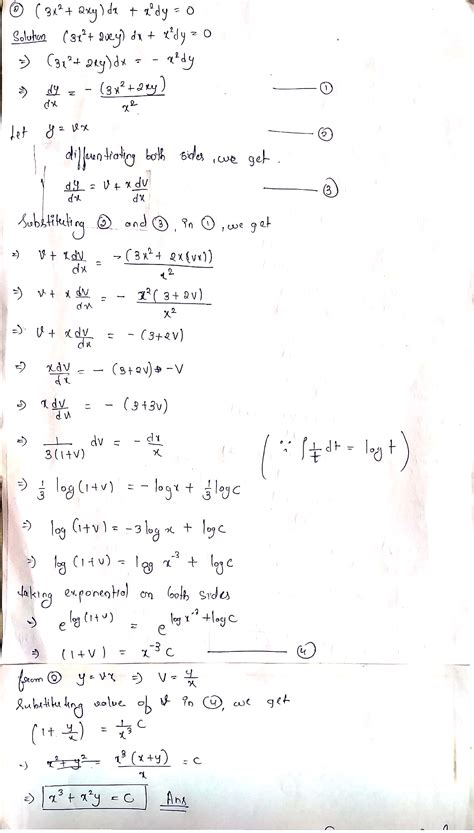 ② (3x² + 2xy) dx + x² dy = 0
Solution (3x² + 2xy) dx + x² dy = 0
=) (3x² + 2xy) dx = - x² dy
=) dy/dx = - (3x² + 2xy)/x² ——— ①
Let y = vx ——— ②
differentiating both sides, we get.
dy/dx = v + x dv/dx ——— ③
Substituting ② and ③, in ①, we get
=) v + x dv/dx = -(3x² + 2x(vx))/x²
=) v + x dv/dx = - x²(3 + 2v)/x²
=) v + x dv/dx = - (3+2v)
=) x dv/dx = - (3+2v) - v
=) x dv/dx = - (3+3v)
=) 1/3(1+v) dv = - dx/x (∵ ∫ 1/t dt = log t)
=) 1/3 log (1+v) = - log x + 1/3 log C
=) log (1+v) = -3 log x + log C
=) log (1+v) = log x⁻³ + log C
taking exponential on both sides
=) e^log(1+v) = e^log x⁻³ + log C
=) (1+v) = x⁻³ C ——— ④
from ② y = vx =) v = y/x
Substituting value of v in ④, we get
(1 + y/x) = 1/x³ C
=) x³(x+y)/x = C
=) x³ + x²y = C Ans